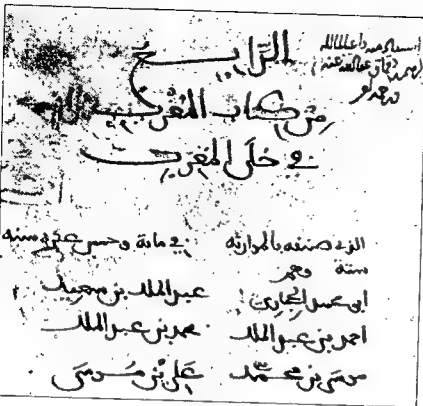 الرابع
من كتاب المغرب
في حلى المغرب
الذي صنفه بالموارثه في ماية وخمس عشرة سنه
ستة وهم
ابو عبد الله الحجاري عبد الملك بن سعيد
احمد بن عبد الملك محمد بن عبد الملك
موسى بن محمد علي بن موسى